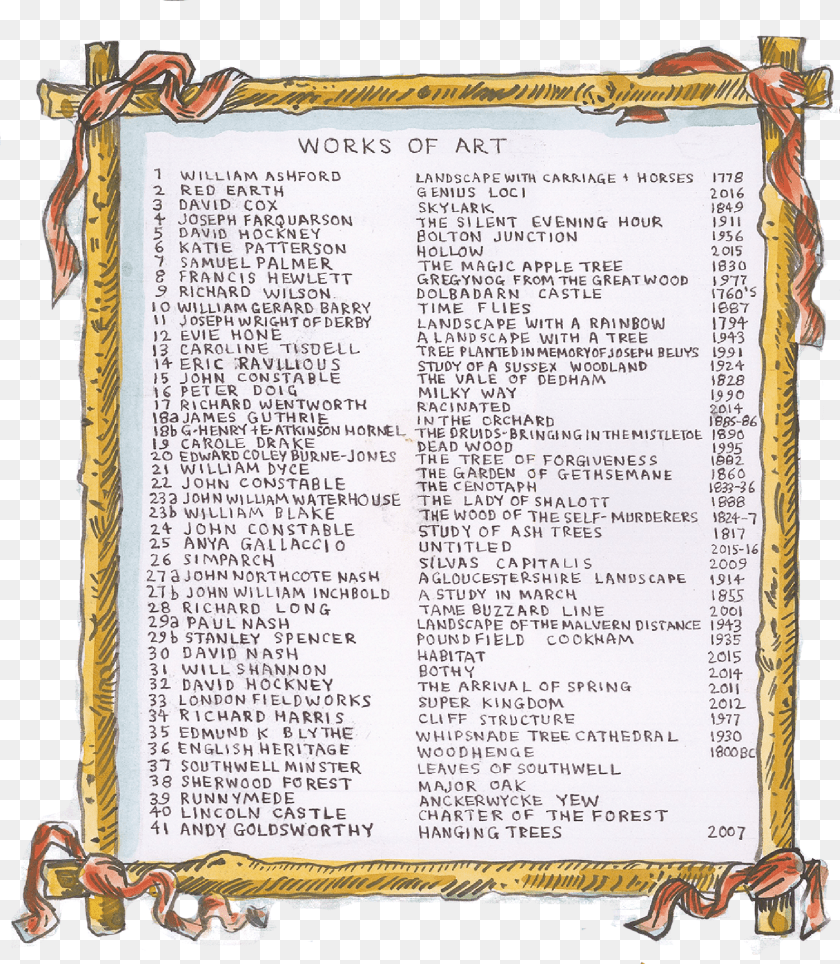 WORKS OF ART
1 WILLIAM ASHFORD LANDSCAPE WITH CARRIAGE + HORSES 1778
2 RED EARTH GENIUS LOCI 2016
3 DAVID COX SKYLARK 1849
4 JOSEPH FARQUARSON THE SILENT EVENING HOUR 1911
5 DAVID HOCKNEY BOLTON JUNCTION 1956
6 KATIE PATTERSON HOLLOW 2015
7 SAMUEL PALMER THE MAGIC APPLE TREE 1830
8 FRANCIS HEWLETT GREGYNOG FROM THE GREAT WOOD 1977
9 RICHARD WILSON DOLBADARN CASTLE 1760'S
10 WILLIAM GERARD BARRY TIME FLIES 1887
11 JOSEPH WRIGHT OF DERBY LANDSCAPE WITH A RAINBOW 1794
12 EVIE HONE A LANDSCAPE WITH A TREE 1943
13 CAROLINE TISDELL TREE PLANTED IN MEMORY OF JOSEPH BEUYS 1991
14 ERIC RAVILIOUS STUDY OF A SUSSEX WOODLAND 1924
15 JOHN CONSTABLE THE VALE OF DEDHAM 1828
16 PETER DOIG MILKY WAY 1990
17 RICHARD WENTWORTH RACINATED 2014
18a JAMES GUTHRIE IN THE ORCHARD 1885-86
18b G-HENRY + E-ATKINSON HORNEL THE DRUIDS-BRINGING IN THE MISTLETOE 1890
19 CAROLE DRAKE DEAD WOOD 1995
20 EDWARD COLEY BURNE-JONES THE TREE OF FORGIVENESS 1882
21 WILLIAM DYCE THE GARDEN OF GETHSEMANE 1860
22 JOHN CONSTABLE THE CENOTAPH 1833-36
23a JOHN WILLIAM WATERHOUSE THE LADY OF SHALOTT 1888
23b WILLIAM BLAKE THE WOOD OF THE SELF-MURDERERS 1824-7
24 JOHN CONSTABLE STUDY OF ASH TREES 1817
25 ANYA GALLACCIO UNTITLED 2015-16
26 SIMPARCH SILVAS CAPITALIS 2009
27a JOHN NORTHCOTE NASH A GLOUCESTERSHIRE LANDSCAPE 1914
27b JOHN WILLIAM INCHBOLD A STUDY IN MARCH 1855
28 RICHARD LONG TAME BUZZARD LINE 2001
29a PAUL NASH LANDSCAPE OF THE MALVERN DISTANCE 1943
29b STANLEY SPENCER POUND FIELD COOKHAM 1935
30 DAVID NASH HABITAT 2015
31 WILL SHANNON BOTHY 2014
32 DAVID HOCKNEY THE ARRIVAL OF SPRING 2011
33 LONDON FIELDWORKS SUPER KINGDOM 2012
34 RICHARD HARRIS CLIFF STRUCTURE 1977
35 EDMUND K BLYTHE WHIPSNADE TREE CATHEDRAL 1930
36 ENGLISH HERITAGE WOODHENGE 1800BC
37 SOUTHWELL MINSTER LEAVES OF SOUTHWELL
38 SHERWOOD FOREST MAJOR OAK
39 RUNNYMEDE ANCKERWYCKE YEW
40 LINCOLN CASTLE CHARTER OF THE FOREST
41 ANDY GOLDSWORTHY HANGING TREES 2007